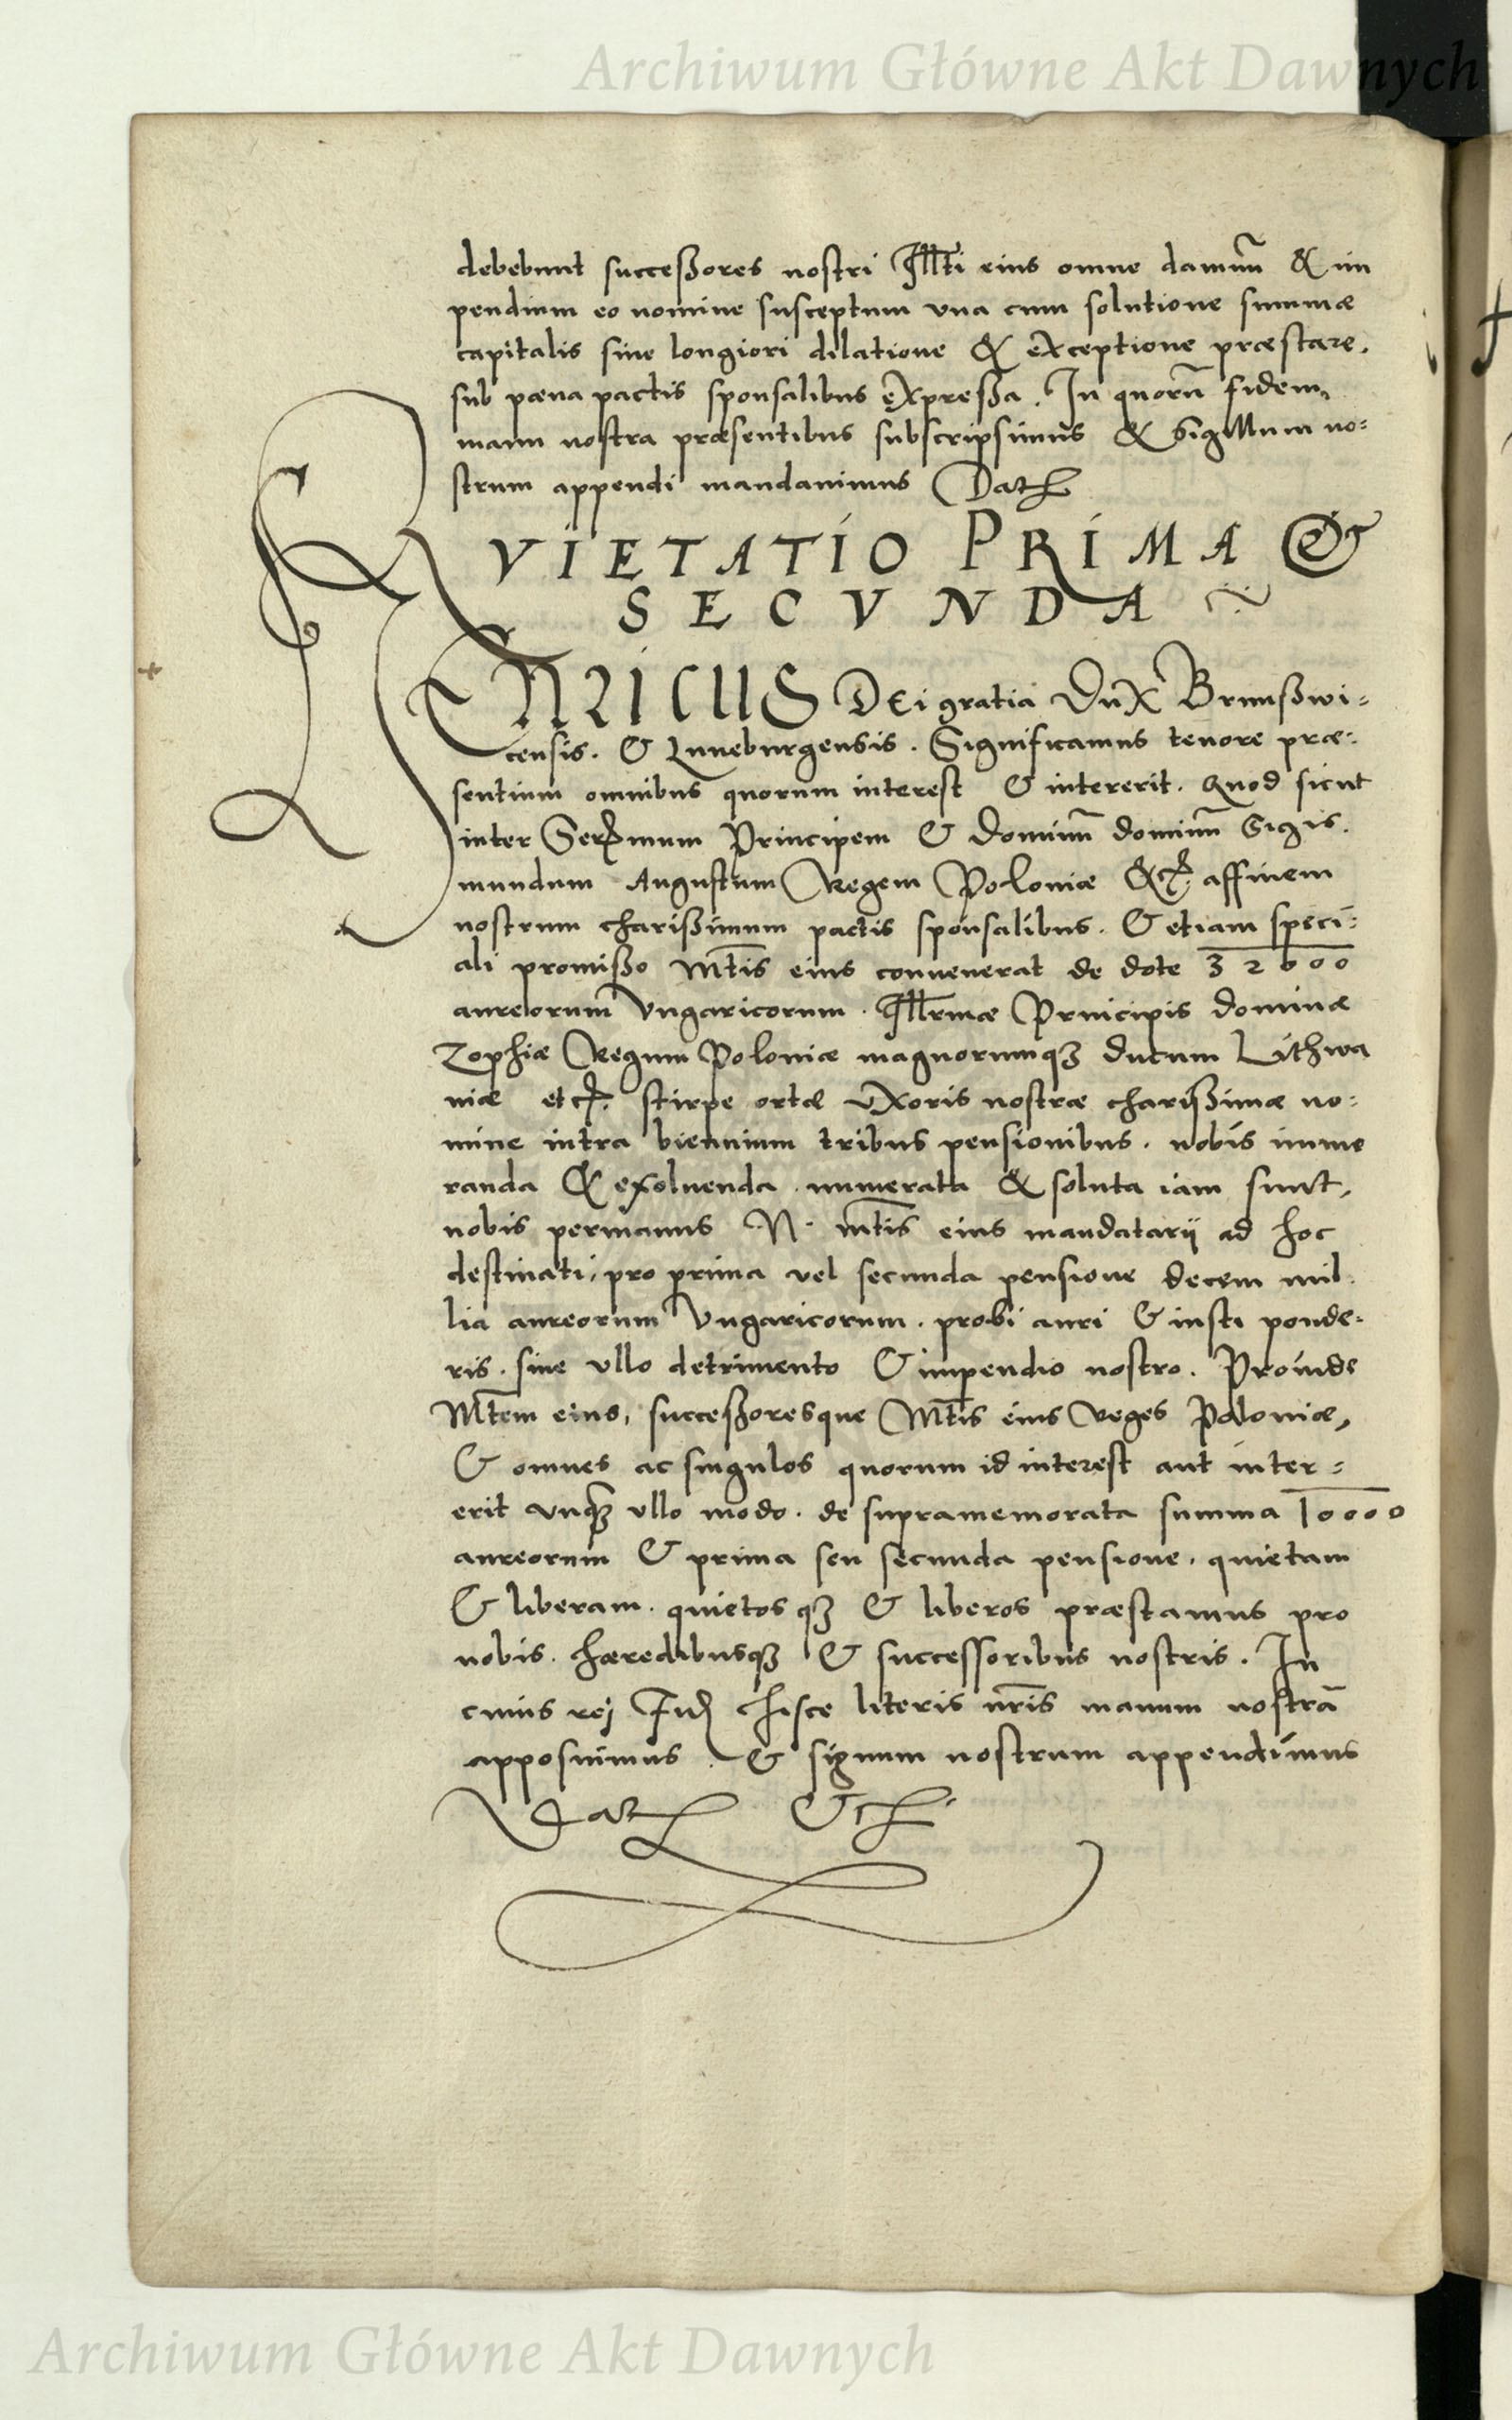 Archiwum Główne Akt Dawnych
debebunt successores nostri Illti eius omne damnũ & im
pendium eo nomine susceptum vna cum solutione summæ
capitalis sine longiori dilatione & exceptione præstare.
sub pœna pactis sponsalibus expressa. In quorũ fidem,
manu nostra præsentibus subscripsimus & sigillum no=
strum appendi mandauimus Dat
QVIETATIO PRIMA &
SECVNDA
ENRICUS DEi gratia Dux Brunßwi=
censis. & Luneburgensis. Significamus tenore præ=
sentium omnibus quorum interest & intererit. Quod sicut
inter Sermum Principem & Dominũ dominũ Sigis.
mundum Augustum Regem Poloniæ &c affinem
nostrum charißimum pactis sponsalibus. & etiam speci=
ali promißo Mtis eius conuenerat de dote 32000
aureorum Vngaricorum. Illrmæ Principis dominæ
Zophiæ Regum Poloniæ magnorumq3 ducum Lithwa
niæ etc. stirpe ortæ vxoris nostræ charißimæ no=
mine intra biennium tribus pensionibus. nobis nume
randa & exoluenda. numerata & soluta iam sunt,
nobis permanus N. mtis eius mandatarij ad hoc
destinati, pro prima vel secunda pensione decem mil.
lia aureorum Vngaricorum. probi auri & iusti ponde=
ris. sine vllo detrimento & impendio nostro. Proinde
Mtem eius, succeßoresque Mtis eius Reges Poloniæ,
& omnes ac singulos quorum id interest aut inter=
erit vnq3 vllo modo. de supramemorata summa 10000
aureorum & prima seu secunda pensione. quietam
& liberam. quietos q3 & liberos præstamus pro
nobis. hæredibusq3 & successoribus nostris. In
cuius rej Fid hisce literis nris manum nostrã
apposuimus. & signum nostrum appendimus
Dat &c
Archiwum Główne Akt Dawnych